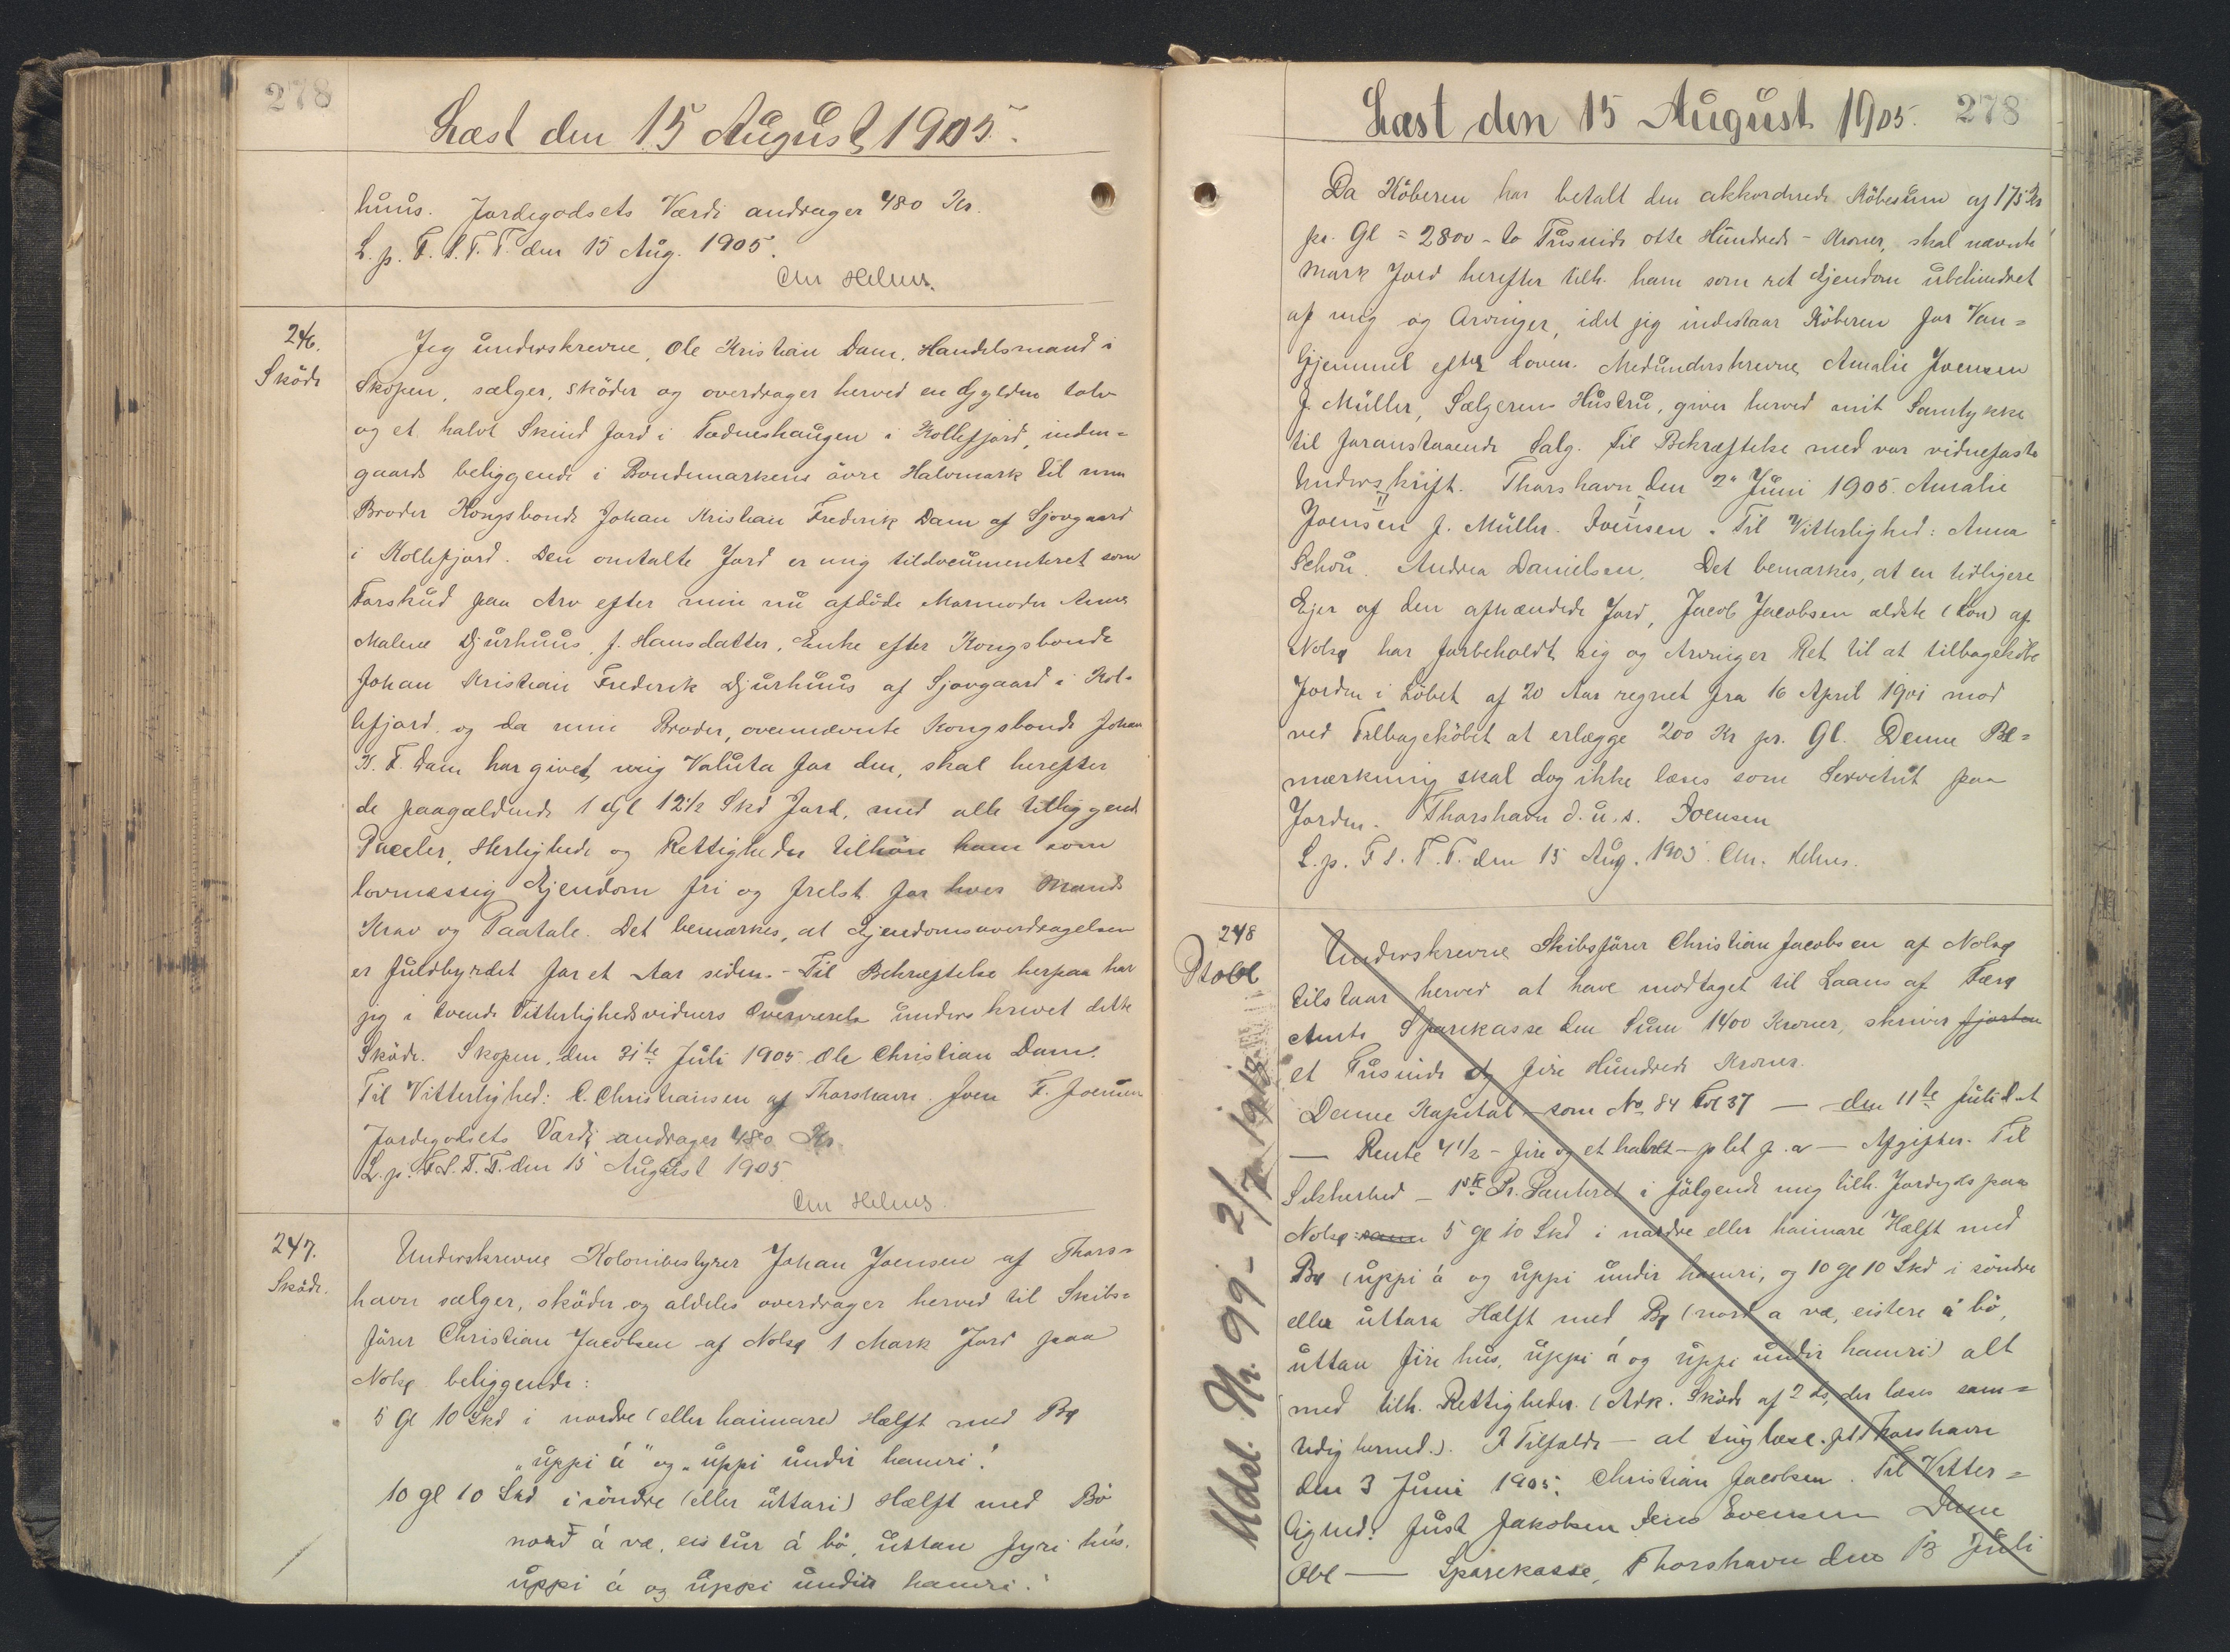 278
Læst den 15 August 1905.
huus. Jordegodsets Værdi andrager 480 Kr.
L. p. F. S. T. T. den 15 Aug. 1905.
Chr Helms.
246.
Sköde
Jeg underskrevne, Ole Kristian Dam, Handelsmand i
Skopen, sælger, sköder og overdrager herved en Gylden tolv
og et halvt Skind Jord i Tødneshaugen i Kollefjord, inden=
gaards beliggende i Bondemarkens övre Halvmark til min
Broder Kongsbonde Johan Kristian Frederik Dam af Sjovgaard
i Kollefjord. Den omtalte Jord er mig tildocumenteret som
Forskud paa Arv efter min nu afdöde Mormoder Anna
Malene Djurhuus, f. Hansdatter, Enke efter Kongsbonde
Johan Kristian Frederik Djurhuus af Sjovgaard i Kol-
lefjord, og da min Broder, ovennævnte Kongsbonde Johan
K. F. Dam har givet mig Valuta for den, skal herefter
de paagældende 1 Gl 12½ Skd Jord, med alle tilliggende
Parceler, Herligheder og Rettigheder tilhöre ham som
lovmæssig Ejendom fri og frelst for hver Mands
Krav og Paatale. Det bemærkes, at Ejendomsoverdragelsen
er fuldbyrdet for et Aar siden. - Til Bekræftelse herpaa har
jeg i tvende Vitterlighedsvidners Overværelse underskrevet dette
Sköde. Skopen, den 31te Juli 1905 Ole Christian Dam.
Til Vitterlighed: C. Christiansen af Thorshavn. Joen F. Joensen
Jordegodsets Værdi andrager 480 Kr.
L. p. F. S. T. T. den 15 August 1905.
Chr Helms.
247.
Sköde.
Underskrevne Kolonibestyrer Johan Joensen af Thors=
havn sælger, sköder og aldeles overdrager herved til Skibs=
förer Christian Jacobsen af Nolsø 1 Mark Jord paa
Nolsø beliggende:
5 Gl 10 Skd i nordre (eller haimare) Hælft med Bø
"uppi á" og "uppi undir hamri".
10 gl 10 Skd i söndre (eller uttari) Hælft med Bö
nord á væ, eistur á bö, uttan fyri hús,
uppi á og uppi undir hamri."
Læst den 15 August 1905. 278
Da Köberen har betalt den akkorderede Köbesum af 175 Kr
pr. Gl = 2800 - to Tusinde otte Hundrede - Kroner, skal nævnte
Mark Jord herefter tilh. ham som ret Ejendom ubehindret
af mig og Arvinger, idet jeg indestaar Köberen for Van=
hjemmel efter Loven. Medunderskrevne Amalie Joensen
f. Müller, Sælgerens Hustru, giver herved mit Samtykke
til foranstaaende Salg. Til Bekræftelse med vor vidnefaste
Underskrift. Thorshavn den 2 Juni 1905. Amalie
Joensen f. Müller. Joensen. Til Vitterlighed: Anna
Schou. Andrea Danielsen. Det bemærkes, at en tidligere
Ejer af den afhændede Jord, Jacob Jacobsen ældste (Lon) af
Nolsø har forbeholdt sig og Arvinger Ret til at tilbageköbe
Jorden i Löbet af 20 Aar regnet fra 16 April 1901 mod
ved Tilbageköbet at erlægge 200 Kr pr. Gl. Denne Be=
mærkning skal dog ikke læses som Servitut paa
Jorden. Thorshavn d. u. s. Joensen
L. p. F. S. T. T. den 15 Aug. 1905. Chr. Helms.
248
Ptobl
Udsl. 99 - 2/7 1918
Underskrevne Skibsförer Christian Jacobsen af Nolsø
tilstaar herved at have modtaget til Laans af Færø
Amts Sparekasse den Sum 1400 Kroner, skriver fjorten
et Tusinde og fire Hundrede Kroner.
Denne Kapital - som No 84 Fol 37 — den 11te Juli d.
— Rente 4½ - fire og et halvt - pCt p. a — Afgifter. Til
Sikkerhed - 1ste Pr. Panteret i fölgende mig tilh. Jordegods paa
Nolsø: samm 5 gl 10 Skd i nordre eller haimare Hælft med
Bø (uppi á og uppi undir hamri, og 10 gl 10 Skd i söndre
eller uttara Hælft med Bø (nord a væ, eistere á bö,
uttan fire hus, uppi á og uppi undir hamri) alt
med tilh. Rettigheder. (Adk. Sköde af 2 ds, der læses sam=
tidig hermed.). I Tilfælde - at tinglæse. Thorshavn
den 3 Juni 1905. Christian Jacobsen. Til Vitter=
lighed: Just Jakobsen Jens Evensen Denne
Obl — Sparekasse, Thorshavn den 13 Juli